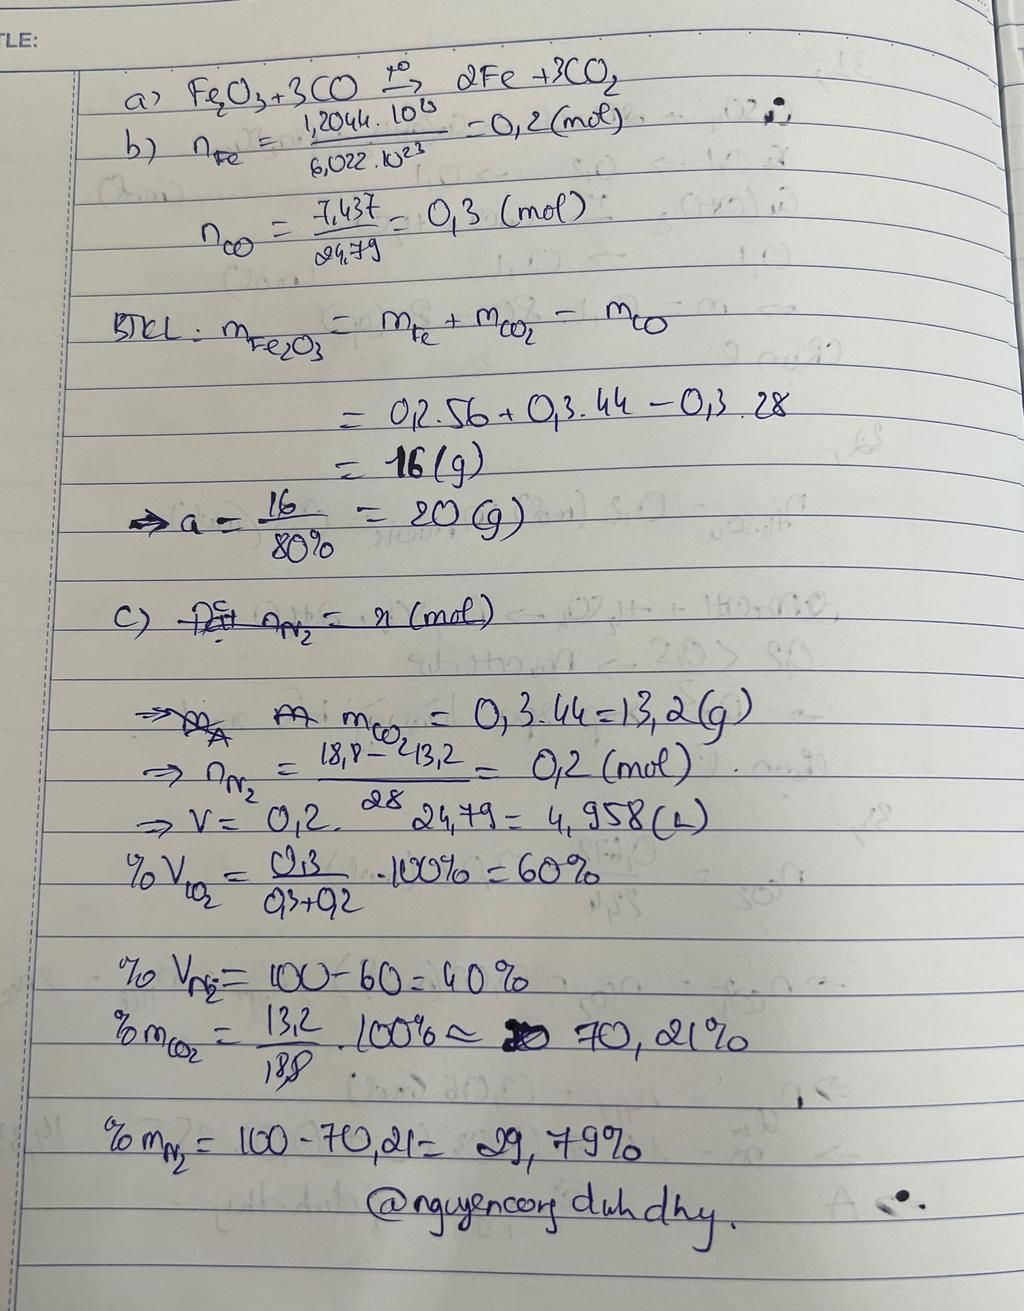 TLE:
a) Fe₂O₃ + 3CO →(t°) 2Fe + 3CO₂
b) n_Fe = 1,2044.10²³ / 6,022.10²³ = 0,2 (mol)
n_CO = 7,437 / 24,79 = 0,3 (mol)
BTKL: m_Fe₂O₃ = m_Fe + m_CO₂ - m_CO
= 0,2.56 + 0,3.44 - 0,3.28
= 16 (g)
=> a = 16 / 80% = 20 (g)
c) n_N₂ = x (mol)
=> m_CO₂ = 0,3.44 = 13,2 (g)
=> n_N₂ = 18,8 - 13,2 / 28 = 0,2 (mol).
=> V = 0,2. 24,79 = 4,958 (L)
%V_CO₂ = 0,3 / 0,3+0,2 .100% = 60%
%V_N₂ = 100 - 60 = 40%
%m_CO₂ = 13,2 / 18,8 .100% ≈ 70,21%
%m_N₂ = 100 - 70,21 = 29,79%